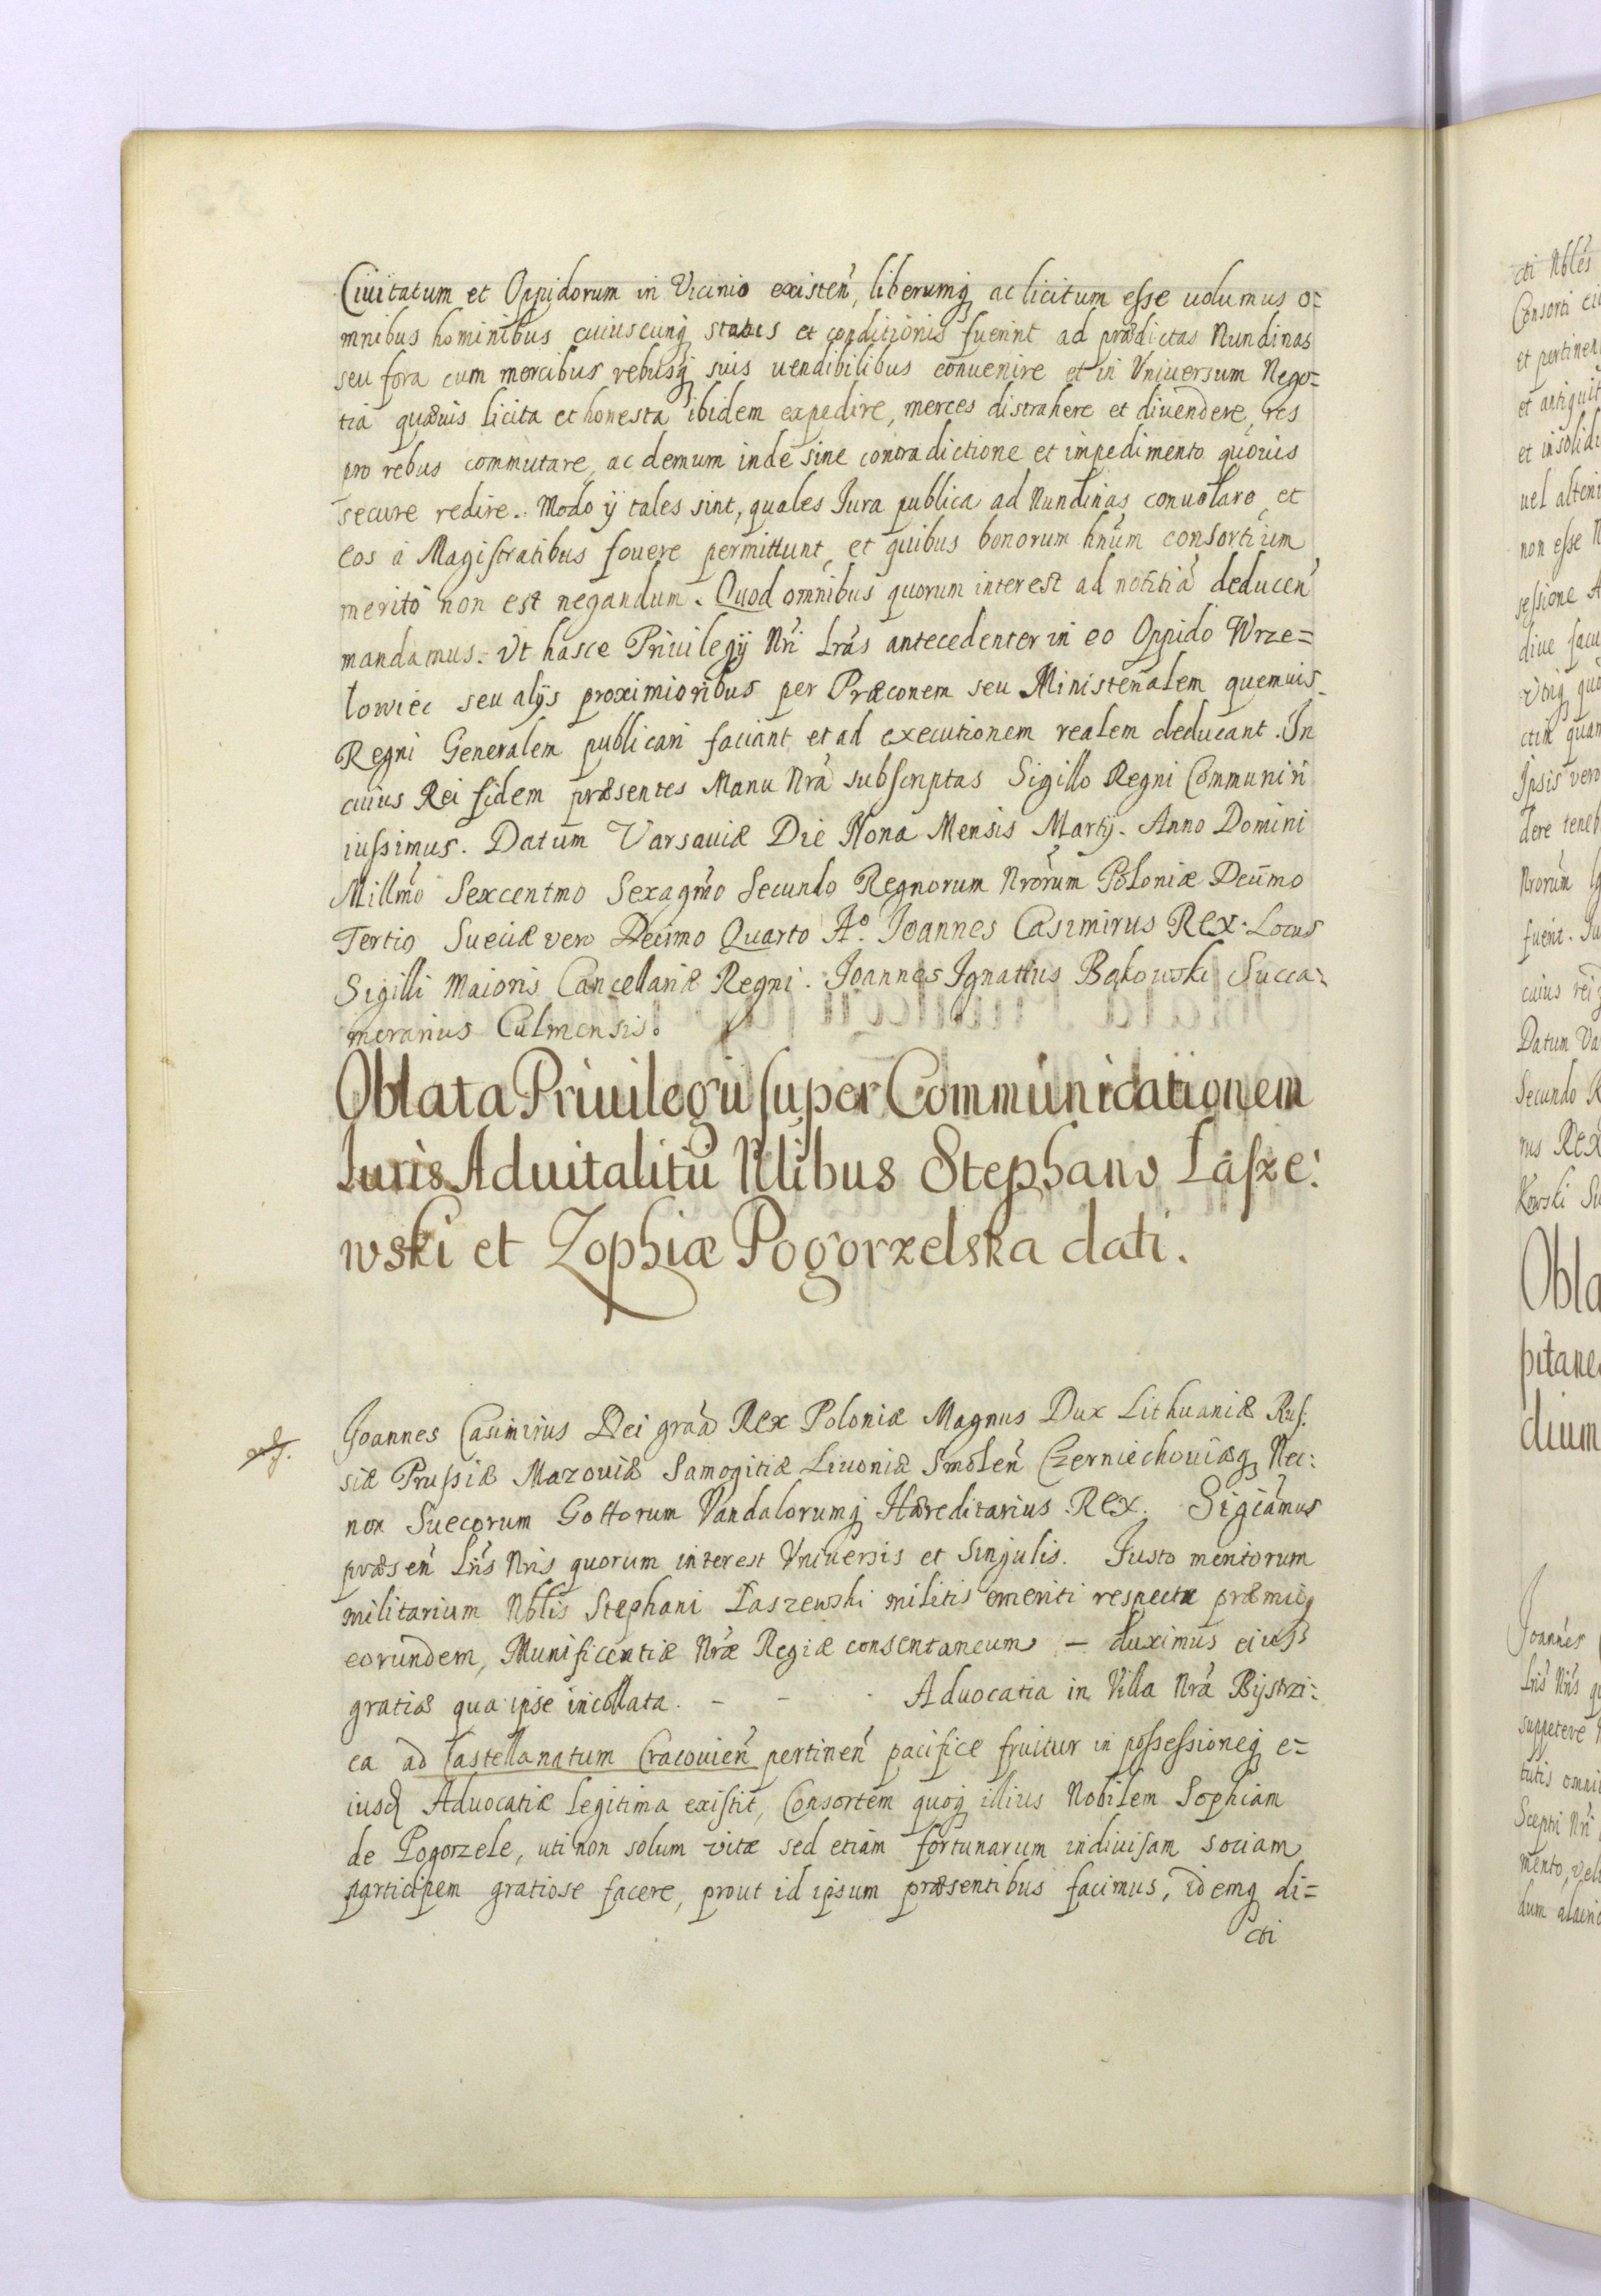 Ciuitatum et Oppidorum in Vicinio existen̄, liberumq ac licitum esse uolumus o=
mnibus hominibus cuiuscunq status et conditionis fuerint ad prædictas Nundinas
seu fora cum mercibus rebusq suis uendibilibus conuenire et in Vniuersum Nego=
tia quæuis licita et honesta ibidem expedire, merces distrahere et diuendere, res
pro rebus commutare, ac demum inde sine contradictione et impedimento quouis
secure redire. Modo ij tales sint, quales Iura publica ad Nundinas conuolare, et
eos à Magistratibus fouere permittunt, et quibus bonorum hnūm consortium
merito non est negandum. Quod omnibus quorum interest ad notitiā deducen̄
mandamus. Vt hasce Priuilegij Nr̄i Lr̄as antecedenter in eo Oppido Wrze=
lowiec seu alijs proximioribus per Præconem seu Ministerialem quemuis
Regni Generalem publicari faciant et ad executionem realem deducant. In
cuius Rei fidem præsentes Manu Nr̄a subscriptas Sigillo Regni Communiri
iussimus. Datum Varsauiæ Die Nona Mensis Martij. Anno Domini
Millm̄o Sexcentmo Sexagm̄o Secundo Regnorum Nr̄orum Poloniæ Decimo
Tertio Sueciæ vero Decimo Quarto A.o Joannes Casimirus Rex. Locus
Sigilli Maioris Cancellariæ Regni. Joannes Ignatius Bąkowski Succa=
merarius Culmensis.
Oblata Priuilegii super Communicationem
Iuris Aduitalitū Nlibus Stephano Łasze:
wski et Zophiæ Pogorzelska dati.
Joannes Casimirus Dei gra͞a Rex Poloniæ Magnus Dux Lithuaniæ Rus:
siæ Prussiæ Mazouiæ Samogitiæ Liuoniæ Smolen̄ Czerniechouiæq Nec:
non Suecorum Gottorum Vandalorumq Hæreditarius Rex. Sigcāmus
præsen̄ Lr̄is Nr̄is quorum interest Vniuersis et Singulis. Justo meritorum
militarium Nblīs Stephani Łaszewski militis emeriti respectu præmiiq
eorundem, Munificentiæ Nr̄æ Regiæ consentaneum – duximus eius
gratiæ qua ipse incollata. – – Aduocatia in Villa Nr̄a Bystrzi=
ca ad Castellanatum Cracouien̄ pertinen̄ pacifice fruitur in possessioneq e=
iusd Aduocatiæ legitima existit, Consortem quoq illius Nobilem Sophiam
de Pogorzele, uti non solum vitæ sed etiam fortunarum indiuisam sociam
participem gratiose facere, prout id ipsum præsentibus facimus, idemq di=
cti